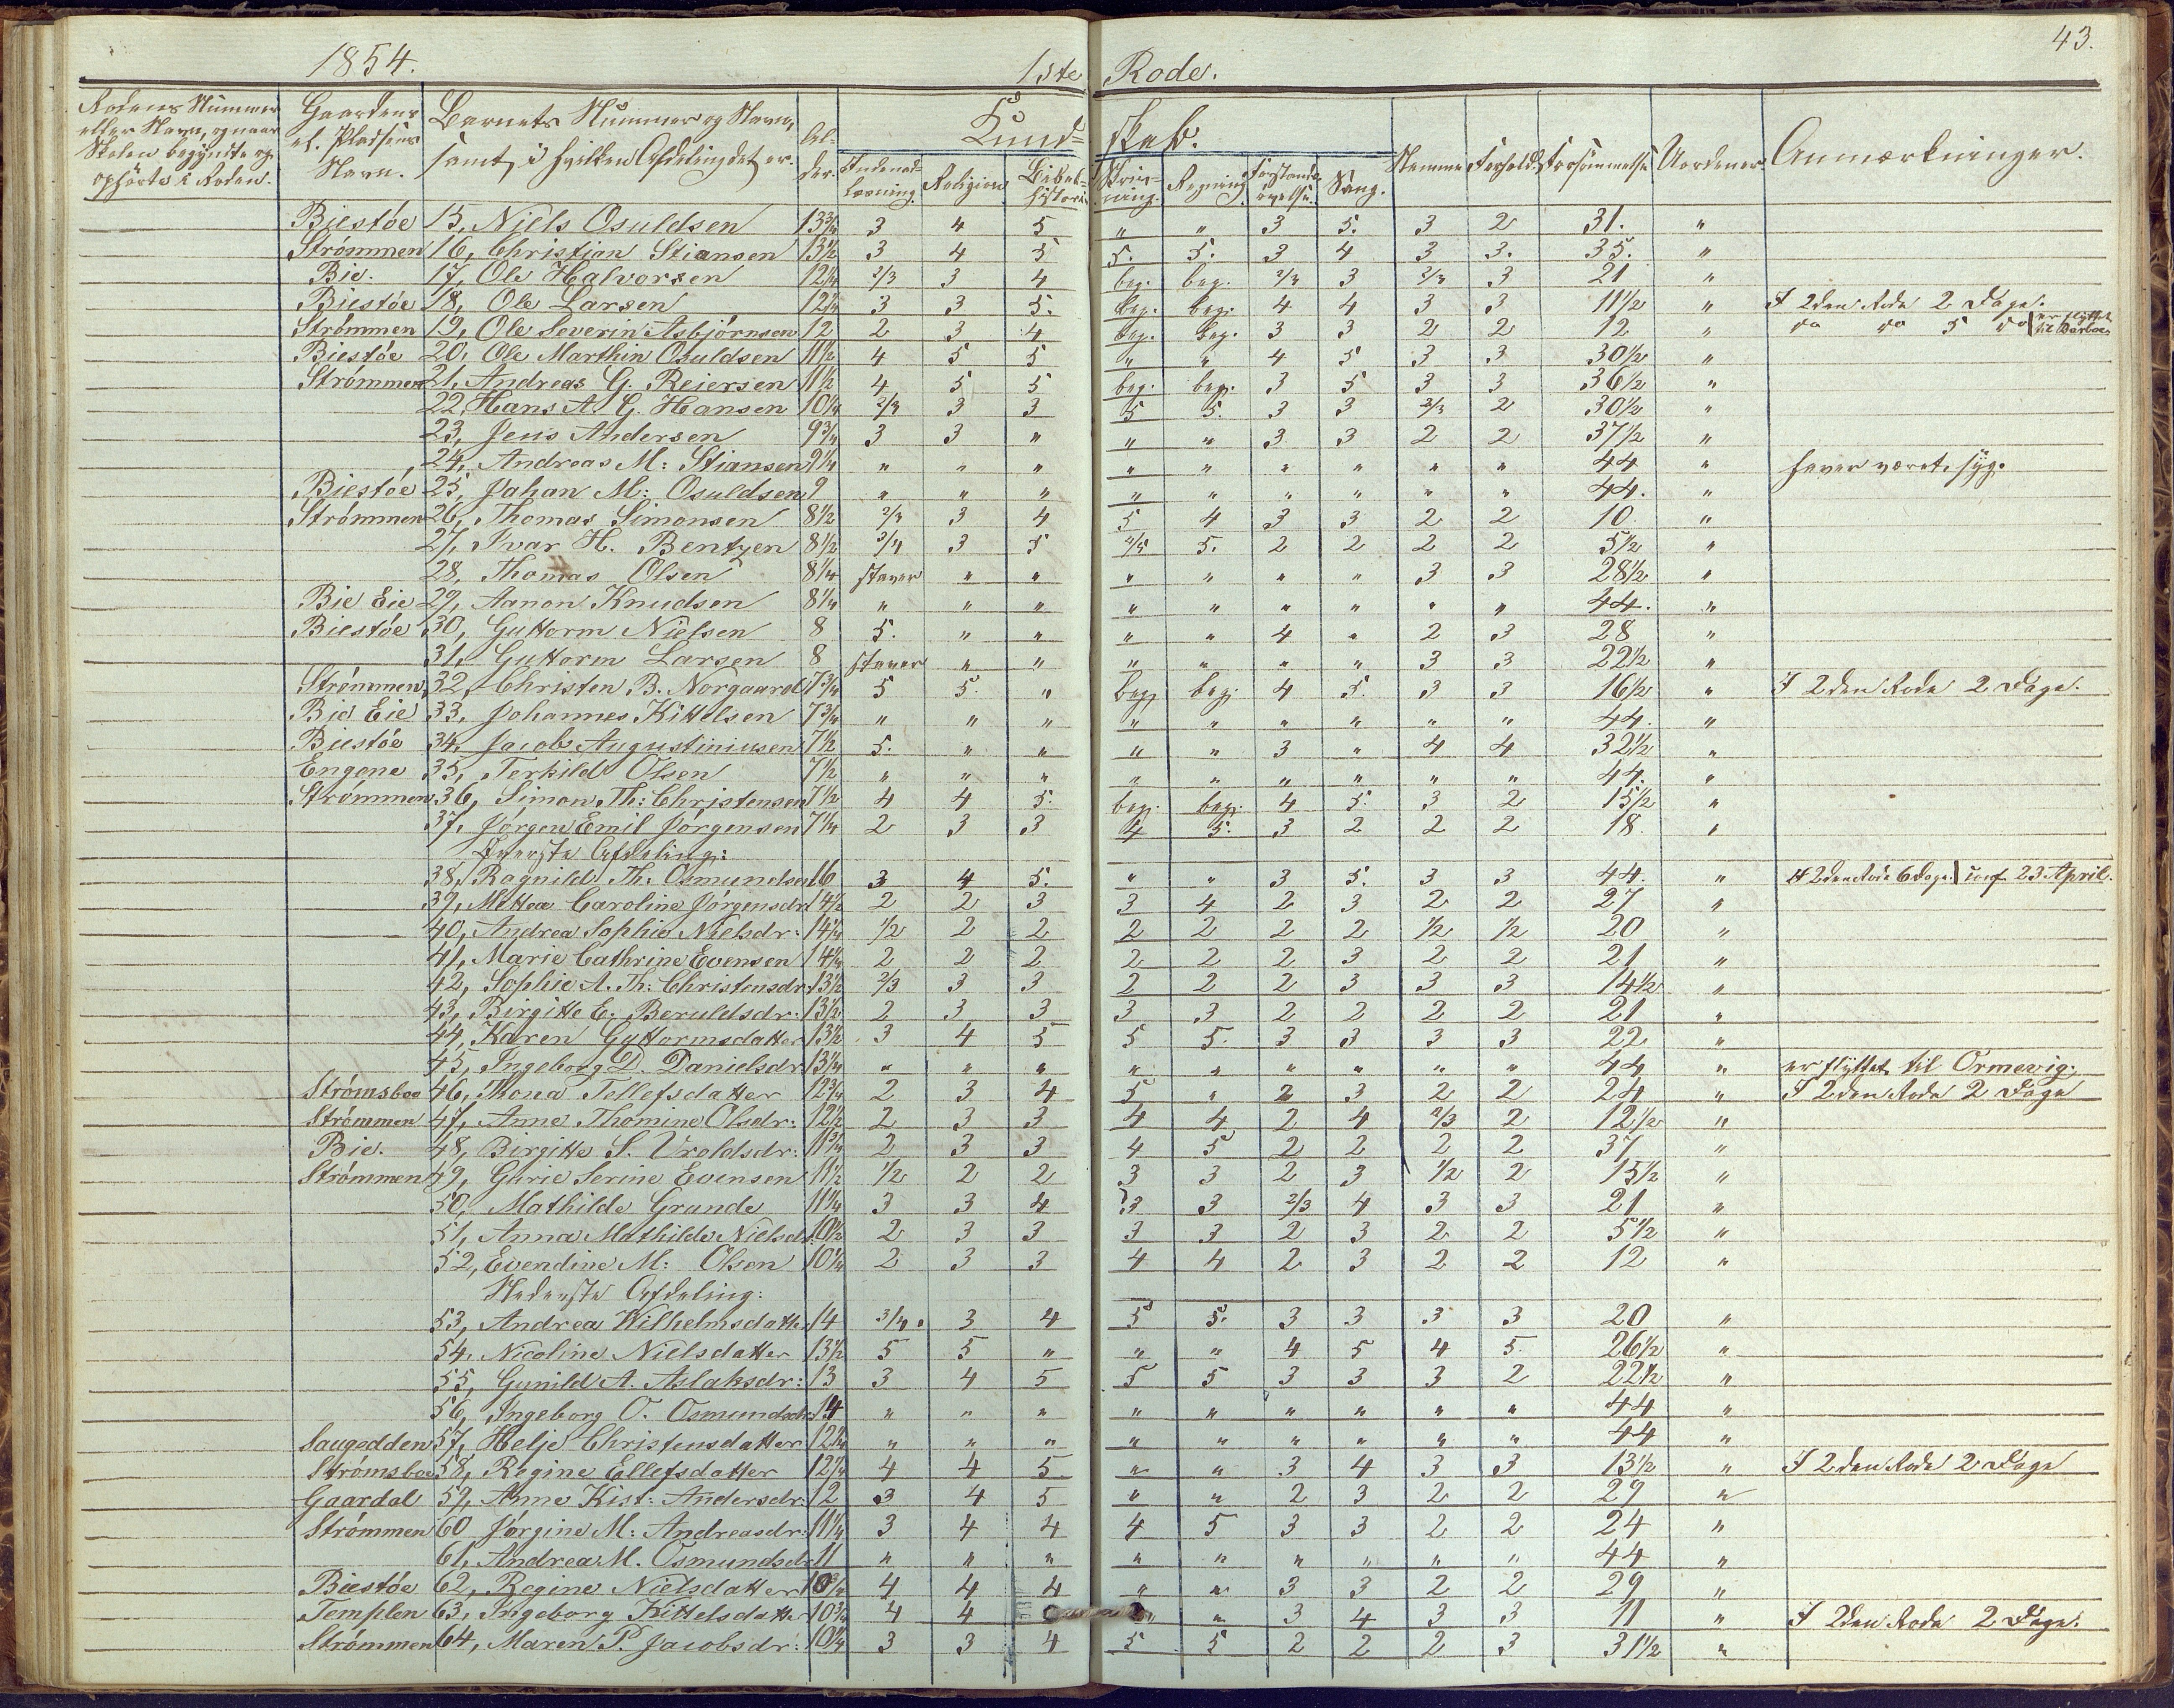 43.
1854. 1ste Rode.
Rodens Nummer eller Navn, og naar Skolen begyndte og ophörte i Roden. Gaardens el. Pladsens Navn. Barnets Nummer og Navn, samt i hvilken Afdeling det er. Alder. Kundskab. Indenadlæsning. Religion Bibelhistorie Skrivning. Regning Forstandsøvelse. Sang. Nemme Forhold. Forsømmelse Uordener. Anmærkninger.
Biestøe 15, Niels Osuldsen 13¾ 3 4 5 " " 3 5. 3 2 31. "
Strömmen 16, Christian Stiansen 13½ 3 4 5 5. 5. 3 4 3 3. 35. "
Bie. 17, Ole Halvorsen 12¼ 2/3 3 4 beg. beg. 2/3 3 2/3 3 21 "
Biestøe 18, Ole Larsen 12¼ 3 3 5. beg. beg. 4 4 3 3 11½ " I 2den Rode 2 Dage.
Strömmen 19, Ole Severin Asbjörnsen 12 2 3 4 beg. beg. 3 3 2 2 12 " do do 5 do er flyttet til Barboe
Biestøe 20, Ole Marthin Osuldsen 11½ 4 5 5 " " 4 5 3 3 30½ "
Strömmen 21, Andreas G. Reiersen 11½ 4 5 5 beg. beg. 3 5 3 3 36½ "
22, Hans A. G. Hansen 10¼ 2/3 3 3 5 5. 3 3 2/3 2 30½ "
23, Jens Andersen 9¾ 3 3 " " " 3 3 2 2 37½ "
24, Andreas M: Stiansen 9¼ " " " " " " " " " 44 " haver været syg.
Biestøe 25, Johan M: Osuldsen 9 " " " " " " " " " 44. "
Strömmen 26, Thomas Simonsen 8½ 2/3 3 4 5 4 3 3 2 2 10 "
27, Ivar H. Bentzen 8½ 3/4 3 5 4/5 5. 2 2 2 2 5½ "
28, Thomas Olsen 8¼ staver " " " " " " 3 3 28½ "
Bie Eie 29, Aanon Knudsen 8¼ " " " " " " " " " 44. "
Biestøe 30, Guttorm Nielsen 8 5. " " " " 4 " 2 3 28 "
31, Guttorm Larsen 8 staver " " " " " " 3 3 22½ "
Strömmen 32, Christen B. Norgaard 7¾ 5 5. " beg. beg. 4 5. 3 3 16½ " I 2den Rode 2 Dage.
Bie Eie 33, Johannes Kittelsen 7¾ " " " " " " " " " 44. "
Biestøe 34, Jacob Augustiniusen 7½ 5. " " " " 3 " 4 4 32½ "
Engene 35, Terkild Olsen 7½ " " " " " " " " " 44. "
Strömmen 36, Simon Th: Christensen 7½ 4 4 5. beg. beg. 4 5. 3 2 15½ "
37, Jörgen Emil Jörgensen 7¼ 2 3 3 4 5. 3 2 2 2 18. "
Øverste Afdeling:
38, Ragnild Th. Osmundsen 16 3 4 5. " " 3 5. 3 3 44. " I 2den Rode 6 Dage. conf. 23 April.
39, Mettea Caroline Jörgensdr. 14½ 2 2 3 3 4 2 3 2 2 27 "
40, Andrea Sophie Nielsdr: 14¼ 1/2 2 2 2 2 2 2 1/2 1/2 20 "
41, Marie Cathrine Evensen 14¼ 2 2 2 2 2 2 3 2 2 21 "
42, Sophie A. Th: Christensdr: 13½ 2/3 3 3 2 2 2 3 3 3 14½ "
43, Birgitte E. Beruldsdr: 13½ 2 3 3 3 3 2 2 2 2 21 "
44, Karen Guttormsdatter 13½ 3 4 5 5 5. 3 3 3 3 22 "
45, Ingeborg D. Danielsdr. 13¼ " " " " " " " " " 44 " er flyttet til Ormevig.
Strömsboe 46, Thona Tellefsdatter 12¾ 2 3 4 5 " 2 3 2 2 24 " I 2den Rode 2 Dage
Strömmen 47, Anne Thomine Olsdr: 12½ 2 3 3 4 4 2 4 2/3 2 12½ "
Bie. 48, Birgitte S. Uroldsdr: 11¾ 2 3 3 4 5 2 2 2 2 37 "
Strömmen 49, Gurie Serine Evensen 11½ 1/2 2 2 3 3 2 3 1/2 2 15½ "
50, Mathilde Grunde 11¼ 3 3 4 3 3 2/3 4 3 3 21 "
51, Anna Mathilde Nielsdr. 10½ 2 3 3 3 3 2 3 2 2 5½ "
52, Evendine M: Olsen 10¼ 2 3 3 4 4 2 3 2 2 12 "
Nederste Afdeling:
53, Andrea Wilhelmsdatter 14 3/4. 3 4 5 5. 3 3 3 3 20 "
54, Nicoline Nielsdatter 13½ 5 5 " " " 4 5 4 5. 26½ "
55, Gunild A. Aslaksdr: 13 3 4 5 5 5 3 3 3 2 22½ "
56, Ingeborg O. Osmundsdr 14 " " " " " " " " " 44 "
Saugedden 57, Helje Christensdatter 12¾ " " " " " " " " " 44 "
Strömsboe 58, Regine Ellefsdatter 12¼ 4 4 5 " " 3 4 3 3 13½ " I 2den Rode 2 Dage
Gaardal 59, Anne Kist: Andersdr: 12 3 4 5 " " 2 3 2 2 29 "
Strömmen 60 Jörgine M: Andreasdr. 11¼ 3 4 4 4 5 3 3 2 2 24 "
61, Andrea M. Osmundsdr 11 " " " " " " " " " 44 "
Biestøe 62, Regine Nielsdatter 10¾ 4 4 4 " " 3 3 2 2 29 "
Templen 63, Ingeborg Kittelsdatter 10¾ 4 4 " " 3 4 3 3 11 " I 2den Rode 2 Dage.
Strömmen 64, Maren P. Jacobsdr: 10¼ 3 3 4 5 5 2 2 2 3 31½ "